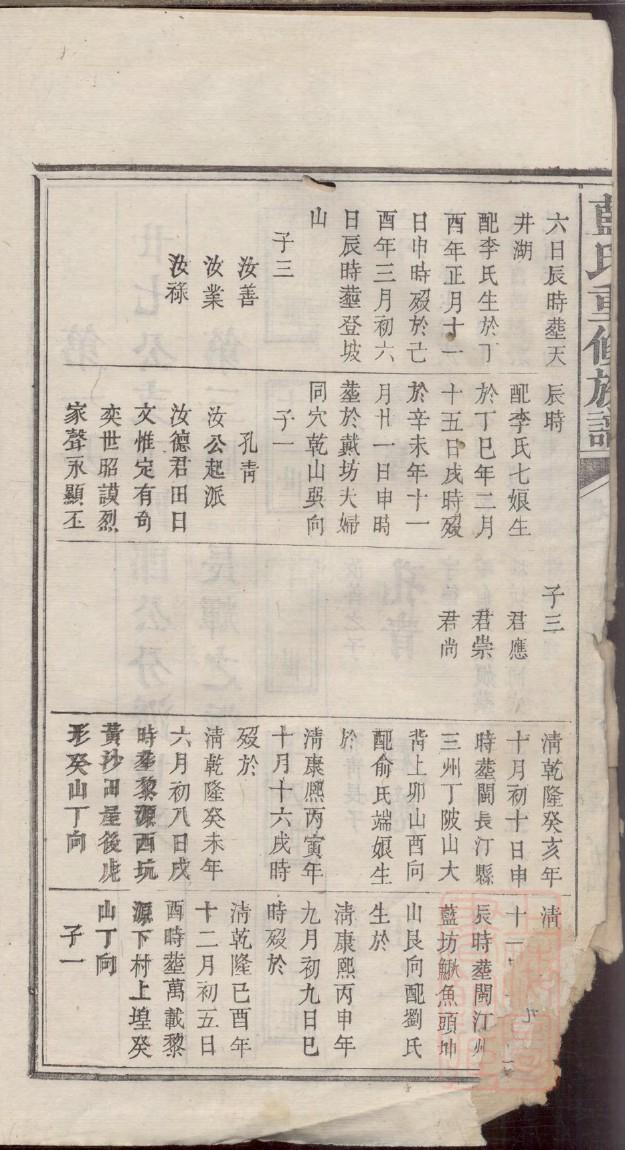 藍氏重修族譜
六日辰時塟天
井湖
配李氏生於丁
酉年正月十一
日申時歿於己
酉年三月初六
日辰時塟登坡
山
子三
汝善
汝業
汝祿
辰時
配李氏七娘生
於丁巳年二月
十五日戌時歿
於辛未年十一
月廿一日申時
塟於戴坊夫婦
同穴乾山巽向
子一
孔青
汝公起派
汝德君田日
文惟定有奇
奕世昭謨烈
家聲永顯丕
子三
君應
君崇
君尚
清乾隆癸亥年
十月初十日申
時塟閩長汀縣
三州丁陂山大
背上卯山酉向
配俞氏端娘生
於
清康熙丙寅年
十月十六戌時
歿於
清乾隆癸未年
六月初八日戌
時塟黎源西坑
黃沙田屋後虎
形癸山丁向
清
十一
辰時塟閩汀州
藍坊鰍魚頭坤
山艮向配劉氏
生於
清康熙丙申年
九月初九日巳
時歿於
清乾隆己酉年
十二月初五日
酉時塟萬載黎
源下村上堭癸
山丁向
子一